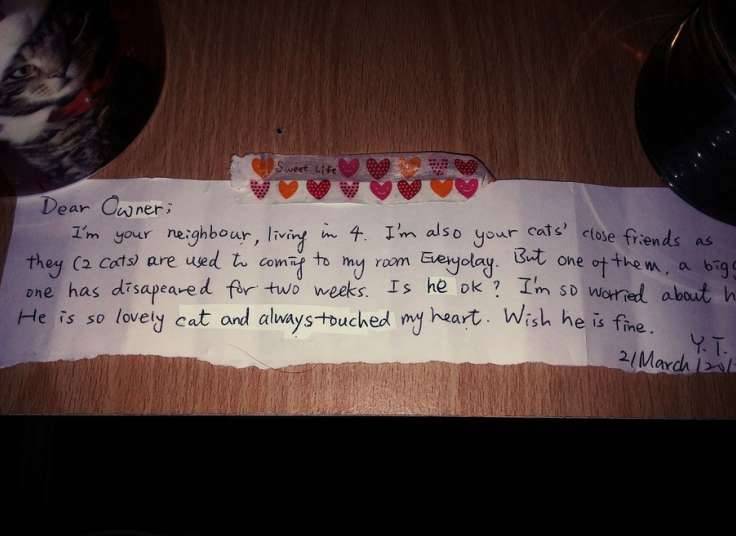 Sweet Life
Dear Owner;
I'm your neighbour, living in 4. I'm also your cats' close friends as
they (2 cats) are used to coming to my room Everyday. But one of them, a
one has disapeared for two weeks. Is he ok? I'm so worried about
He is so lovely cat and always touched my heart. Wish he is fine.
Y.T.
2/March/